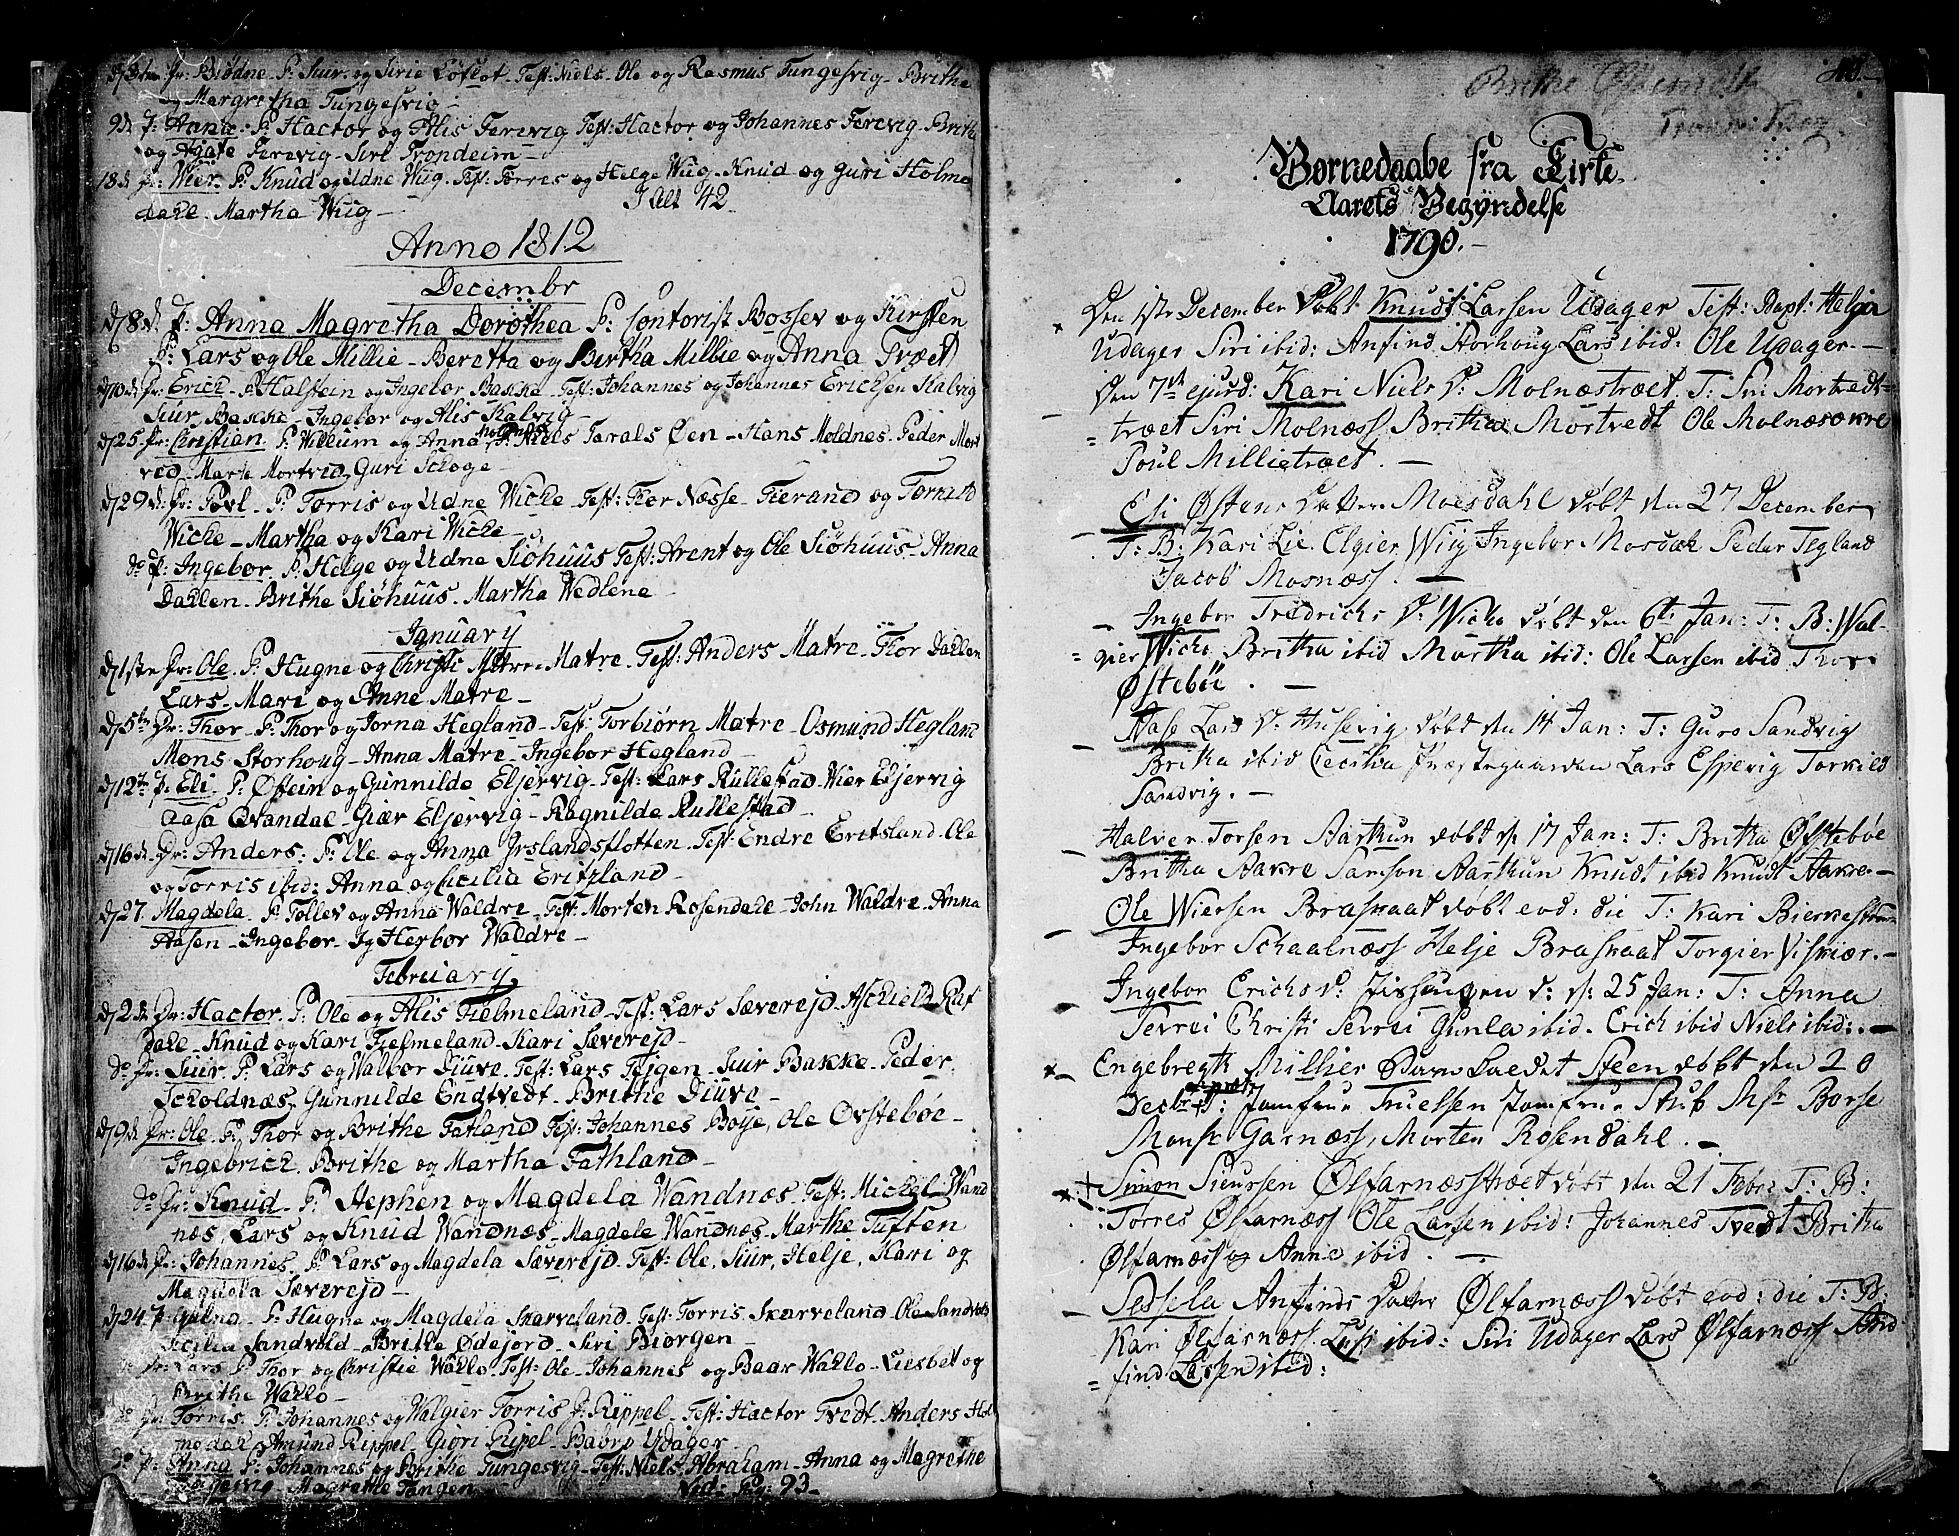 Pr: Biødne P: Siur og Sirie Løflot Test: Niels Ole og Rasmus Tungesvig Brithe
og Margretha Tungesvig
9d P: Anne P: Hactor og Alis Ferevig Test: Hactor og Johannes Ferevig Brithe
og Agate Ferevig Sirl Trondeim
18d pr: Wier P: Knud og Udne Wiig Test: Torres og Helge Wiig Knud og Guri Holme
dahl Martha Wiig
I alt 42
Anno 1812
Decembr
d/8d P: Anna Magretha Dorothea P: Contorist Bossev og Kirsten
T: Lars og Ole Millie Beretta og Birtha Millie og Anna Træet
d/10d pr: Erich P: Halstein og Ingebor Bakke Test: Johannes og Johannes Erichsen Kalvig
Siur Bakke Ingebor og Alis Kalvig
d/25 pr: Christian P: Willum og Anna Niels Tarals Øen Hans Moldnes Peder Mort
ved Marte Mortvid Guri Schoge
d/29d: pr: Povl P: Torris og Udne Wicke Test: Thor Næsse Tierand og Tornild
Wicke Martha og Kari Wicke
do P: Ingebor P: Helge og Udne Siøhuus Test: Arent og Ole Siøhuus Anna
Dahlen Brithe Siøhuus Martha Wedlene
January
d/1ste Pr: Ole P: Hugne og Christi Matre Test: Anders Matre Thor Dahlen
Lars Mari og Anne Matre
d/5te Pr: Thor P: Thor og Jorna Hegland Test: Torbiørn Matre Osmund Hegland
Mons Storhoug Anna Matre Ingebor Hegland
d/12t P: Eli P: Østein og Gunnilde Eljervig Test: Lars Rullestad Wier Eljervig
Aasa Qvandal Giær Eljervig Ragnilde Rullestad
d/16d Pr: Anders P: Ole og Anna Irslandsflotten Test: Endre Eritsland Ole
og Torris ibid: Anna og Cicilia Eritzland
d/27 Magdela P: Tollev og Anna Waldre Test: Morten Rosendahl John Waldre Anna
Aasen Ingebor Ig Herbor Waldre
February
d/2d Pr: Hactor P: Ole og Alis Fielmeland Test: Lars Sæverejd Aschield Raf
dahl Knud og Kari Fielmeland Kari Sæverejd
do pr: Siur P: Lars og Walbor Diuve Test: Lars Tejgen Siur Bakke Peder
Scholdnæs Gunnilde Endtvedt Brithe Diuve
d/9d pr: Ole P: Thor og Brithe Fatland Test: Johannes Boye Ole Øvstebøe
Ingebrich Brithe og Martha Fathland
do pr: Knud P: Stephen og Magdela Wandnæs Test: Michel Wand
næs Lars og Knud Wandnæs Magdele Wandnæs Marthe Tuften
d/16d pr: Johannes P: Lars og Magdela Sæverejd Test: Ole Siur Helje Kari og
Magdela Sæverejd
d/24 P: Gulna P: Hugne og Magdela Skarveland Test: Torris Skarveland Ole Sandvold
Cicilia Sandvold Brithe Ødejord Siri Biorgen
do pr: Lars P: Thor og Christie Wallo Test: Ole Johannes og Baar Wallo Liesbet og
Brithe Wallo
do pr: Torris P: Johannes og Walgier Torris Rippel Test: Hactor Tvedt Anders Hol
medal Amund Rippel Giøri Ripel Babro Udager
do P: Anna P: Johannes og Brithe Tungesvig Test: Niels Abraham Anna og Magrethe
Magrethe Tangen Vid: Pag: 93
Brithe
Børnedaabe fra Kirke
Aarets Begyndelse
1790.
Den 1ste December døbt Knudt Larsen Udager Test: Bapt: Helja
Udager Siri ibid: Anfind Storhoug Lars ibid: Ole Udager.
Den 7de ejusd: Kari Niels D: Molnæstræet. T: Siri Mortvedt=
=træet Siri Molnæss Britha Mortvedt Ole Molnæsøkre
Poul Millietræet.
Eli Østens Datter Moesdahl døbt den 27 December
T: B: Kari Lie. Elgier Wiig Ingebor Mosdal Peder Tegland
Jacob Mosnæss.
Ingebor Fredrichs D: Wicke døbt den 6te Jan: T: B: Wal=
=gier Wicke Britha ibid Martha ibid: Ole Larsen ibid Thor
Østebøe.
Aase Lars D: Husevig døbt den 14 Jan: T: Guro Sandvig
Britha ibid Cecilia Præstegaarden Lars Espevig Torkild
Sandvig.
Halver Torsen Aarthun døbt d: 17 Jan: T: Britha Østebøe
Britha Aakre Samson Aarthun Knudt ibid Knudt Aakre.
Ole Wiersen Braskaat døbt eod: die T: Kari Bierkestrøm
Ingebor Schaalnæss Helje Braskaat Torgier Viskiær.
Ingebor Erichs D: D: d: 25 Jan: T: Anna
Tevrei Christi Tevrei Gunla ibid. Erich ibid Niels ibid:
Engebregth Millier Barn kaldet Steen døbt den 20
Decbr T: Jomfrue Truelsen Jomfrue Stub Msr Borse
Monsr Garnæss, Morten Rosendahl.
Simon Siursen Ølfarnæsstræet døbt den 21 Febr: T: B:
Torres Ølfarnæss Ole Larsen ibid: Johannes Tvedt Britha
Ølfarnæss og Anne ibid.
Sessela Anfinds Datter Ølfarnæss døbt eod: die T: B:
Kari Ølfarnæss Lusi ibid: Siri Udager Lars Ølfarnæss And
=find Lassen ibid: